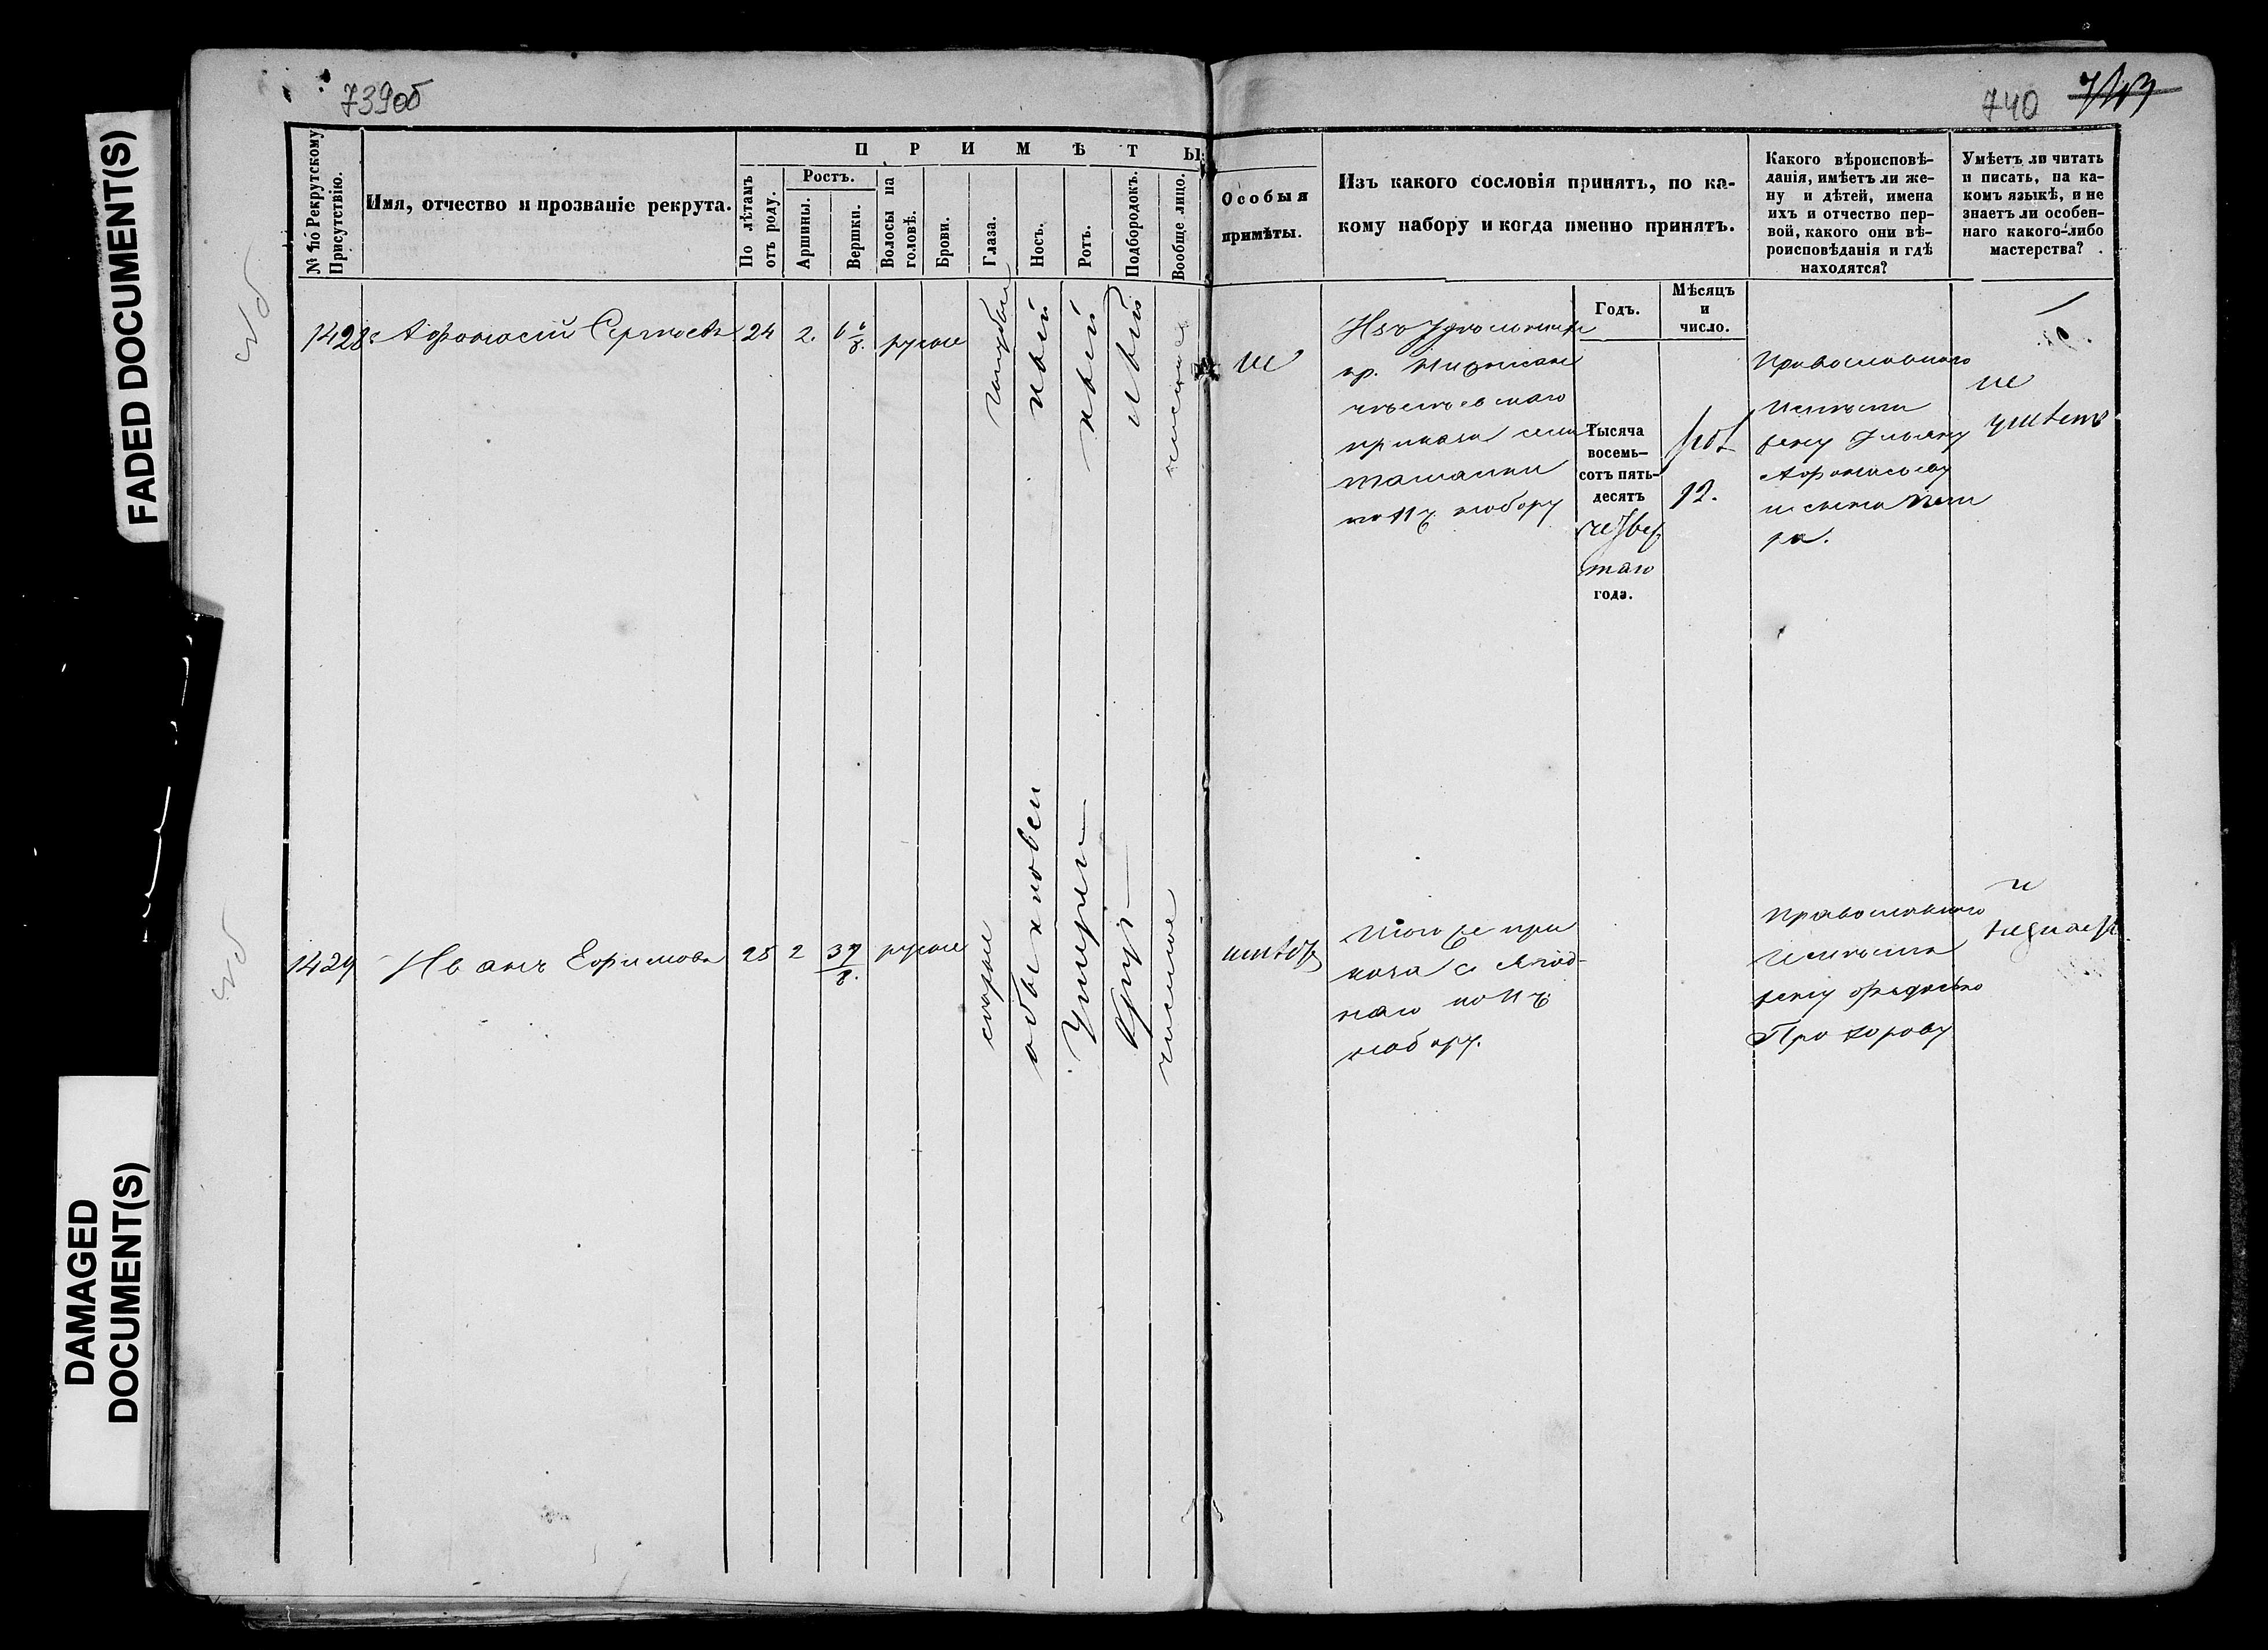 FADED DOCUMENT(S)
DAMAGED
DOCUMENT(S)
739об
740
№ по Рекрутскому
Присутствію.
Имя, отчество и прозваніе рекрута.
П Р И М Ѣ Т Ы.
По лѣтамъ
отъ роду.
Ростъ.
Аршины.
Вершки.
Волосы на
головѣ.
Брови.
Глаза.
Носъ.
Ротъ.
Подбородокъ.
Вообще лицо.
Особыя
примѣты.
Изъ какого сословія принятъ, по ка-
кому набору и когда именно принятъ.
Какого вѣроисповѣ-
данія, имѣетъ ли же-
ну и дѣтей, имена
ихъ и отчество пер-
вой, какого они вѣ-
роисповѣданія и гдѣ
находятся?
Умѣетъ ли читать
и писать, на ка-
комъ языкѣ, и не
знаетъ ли особен-
наго какого-либо
мастерства?
Годъ.
Мѣсяцъ
и
число.
1428
Афонасій Сергѣевъ
24
2.
русые
голубые
не
Изъ Удѣльныхъ
кр.
приказа села
по 11 ч набору
Тысяча
восемь-
сотъ пять-
десятъ
четвер
таго
года.
12.
Православнаго
жену
Афонасьеву
и сына Пет
ра.
не
умѣетъ
1429
Иванъ Ефимовъ
25
2
3 7/8.
русые
сѣрые
обыкновен
Умѣрен
Круг
чистое
имѣетъ
Того же при
каза с
наго по 11 ч.
набору.
Православнаго
жену Федосью
Прохорову
и
незнаетъ